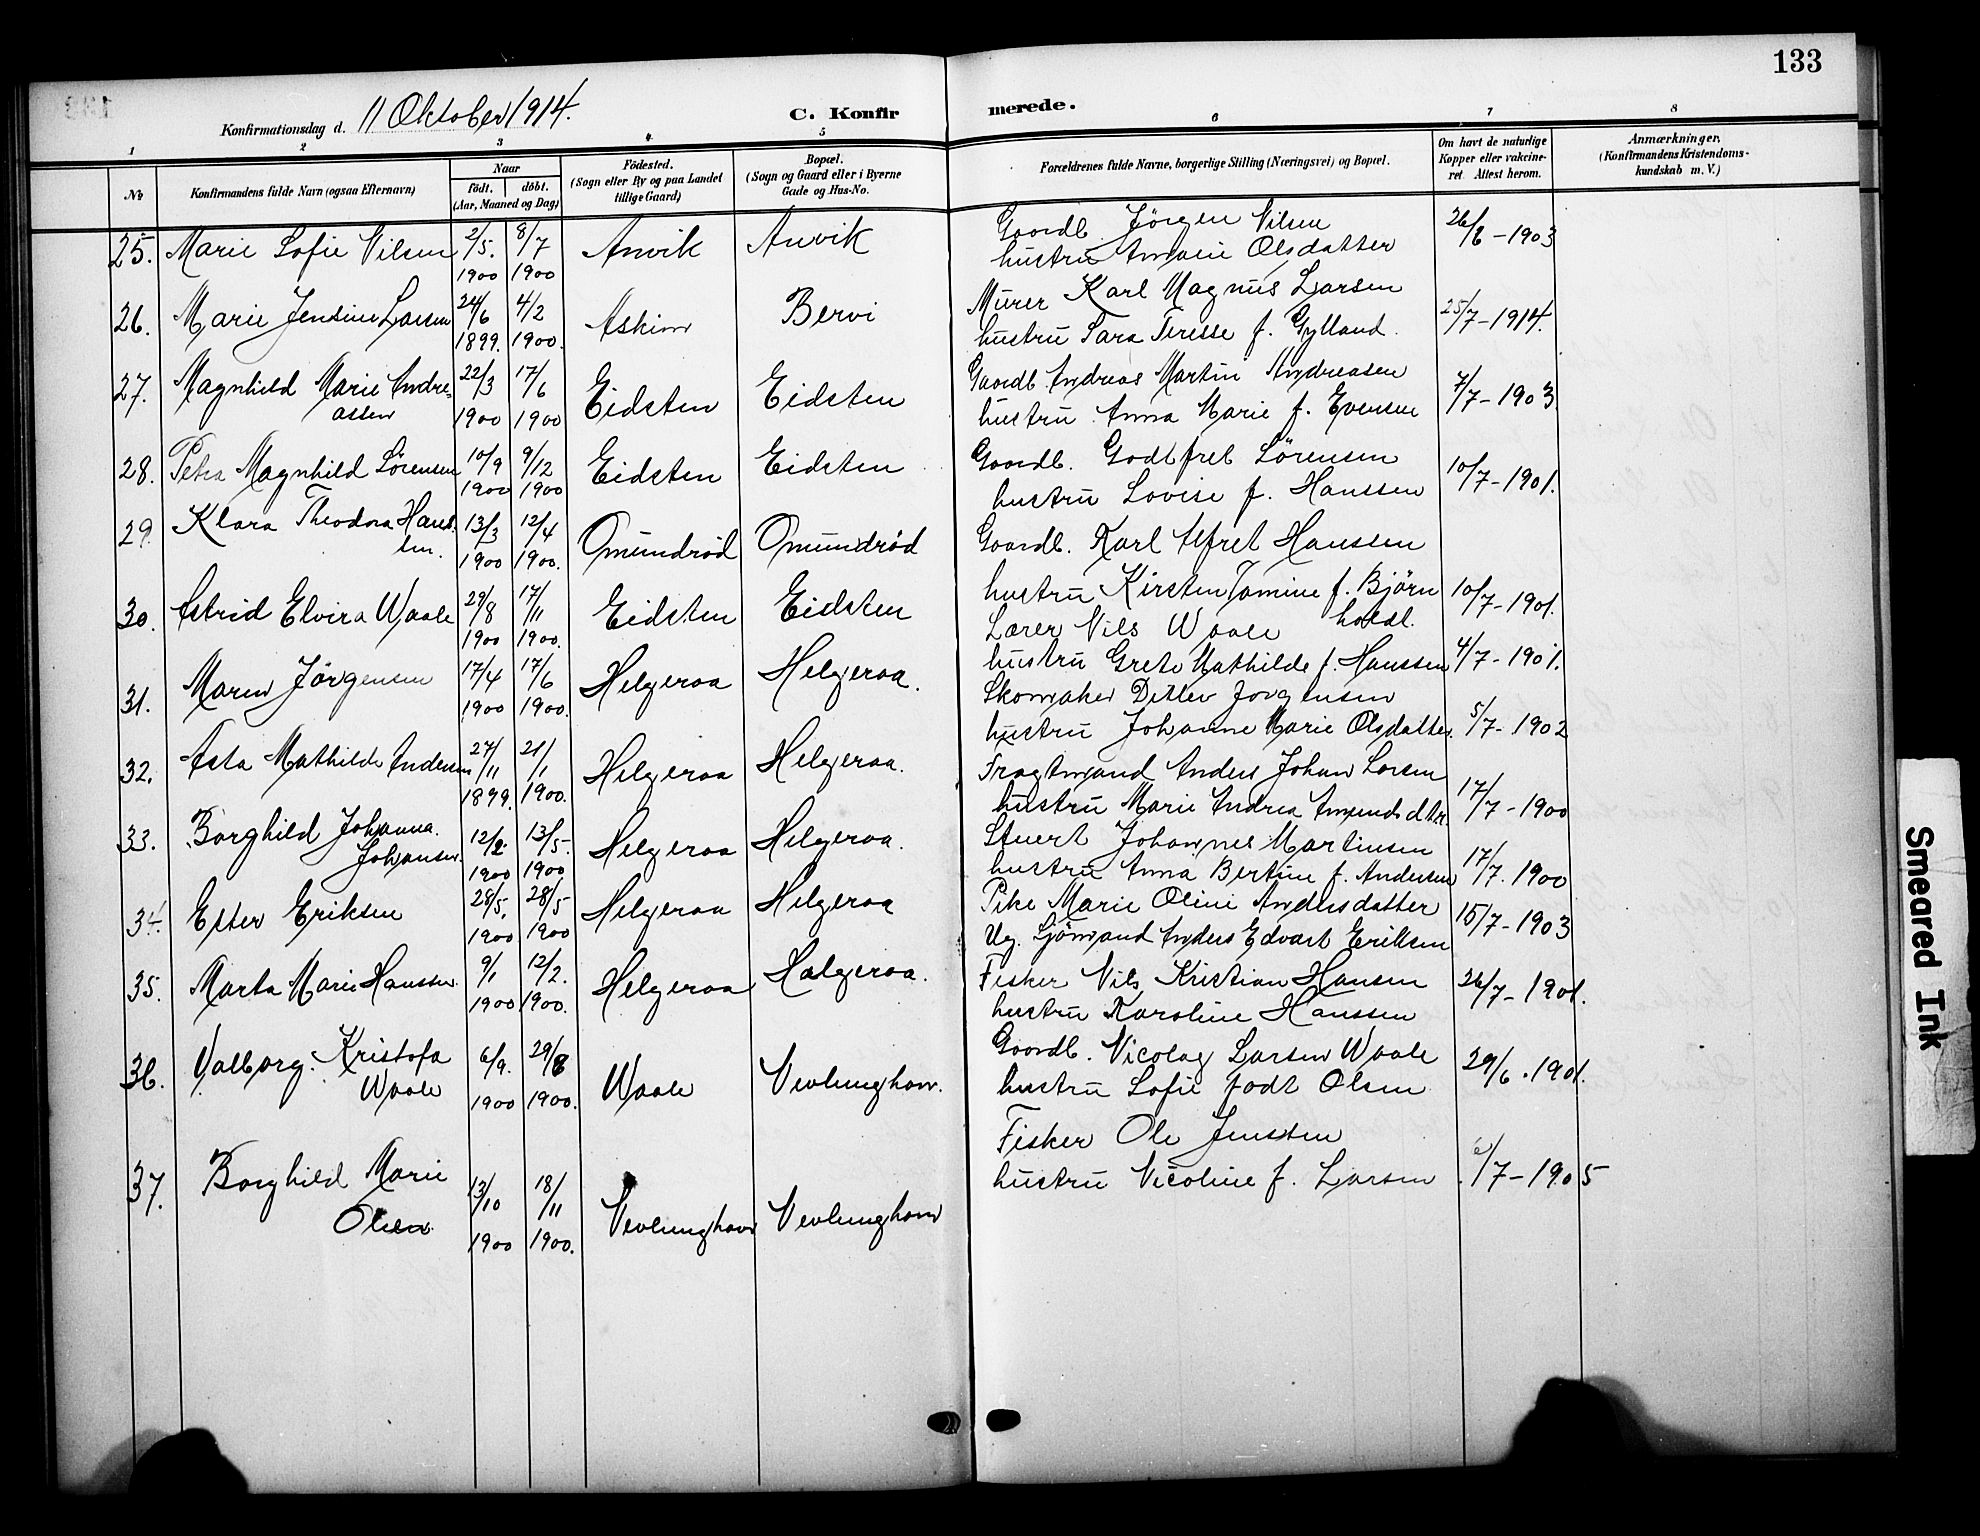 133
Konfirmationsdag d. 11 Oktober 1914.
C. Konfirmerede.
1 2 3 4 5 6 7 8
No
Konfirmandens fulde Navn (ogsaa Efternavn)
Naar
födt. döbt.
(Aar, Maaned og Dag)
Födested.
(Sogn eller By og paa Landet
tillige Gaard)
Bopæl.
(Sogn og Gaard eller i Byerne
Gade og Hus-No.
Forældrenes fulde Navne, borgerlige Stilling (Næringsvei) og Bopæl.
Om havt de naturlige
Kopper eller vakcine-
ret. Attest herom.
Anmærkninger.
(Konfirmandens Kristendoms-
kundskab m. V.)
25. Marie Sofie Nilsen 2/5. 8/7 Anvik Anvik Gaardb. Jörgen Nilsen 26/6 - 1903
1900 1900 hustru Amalie Olsdatter
26. Marie Jensine Larsen 24/6 4/2 Askim Bervi Murer Karl Magnus Larsen 25/7 - 1914.
1899. 1900. hustru Sara Teresse f. Gylland.
27. Magnhild Marie Andre- 22/3 17/6 Eidsten Eidsten Gaardb. Andreas Martin Andreasen 7/7 - 1903.
assen 1900 1900 hustru Anna Marie f. Evensen
28. Petra Magnhild Sörensen 10/9 9/12 Eidsten Eidsten Gaardb. Godtfret Sörensen 10/7 - 1901.
1900 1900 hustru Lovise f. Hanssen
29. Klara Theodora Hans- 13/3 12/4 Omundröd Omundröd Gaardb. Karl Alfret Hanssen
sen. 1900 1900. hustru Kirsten Tomine f. Björn 10/7 - 1901.
holdt.
30. Astrid Elvira Waale 29/8 17/11 Eidsten Eidsten Lærer Nils Waale
1900 1900. hustru Grete Mathilde f. Hanssen 4/7 - 1901.
31. Maren Jörgensen 17/4 17/6 Helgeroa Helgeroa. Skomaker Ditlev Jörgensen
1900 1900. hustru Johanne Marie Olsdatter. 5/7 - 1902
32. Asta Mathilde Andersen 27/11 21/1 Helgeroa Helgeroa. Fragtmand Anders Johan Larsen
1899. 1900. hustru Marie Andrea Amunds dtr. 17/7 - 1900
33. Borghild Johanna. 12/2 13/5. Helgeroa Helgeroa. Stuert Johannes Martinsen
Johansen. 1900 1900 hustru Anna Bertine f. Andersen 17/7. 1900
34. Ester Eriksen 28/5. 28/5 Helgeroa Helgeroa Pike Marie Oline Andersdatter 15/7 - 1903
1900 1900 Ug. Sjömand Anders Edvart Eriksen
35. Marta Marie Hanssen. 9/1 12/2. Helgeroa Halgeroa. Fisker Nils Kristian Hansen 26/7 - 1901.
1900 1900. hustru Karoline Hanssen
36. Valborg Kristofa 6/9. 29/8 Waale Nevlunghavn. Gaardb. Nicolay Larsen Waale 29/6. 1901.
Waale 1900 1900. hustru Sofie födt Olsen
Fisker Ole Jenssen
37. Borghild Marie 13/10 18/11 hustru Nicoline f. Larsen 6/7 - 1905
Olsen 1900 1900. Nevlunghavn Nevlunghavn
Smeared Ink